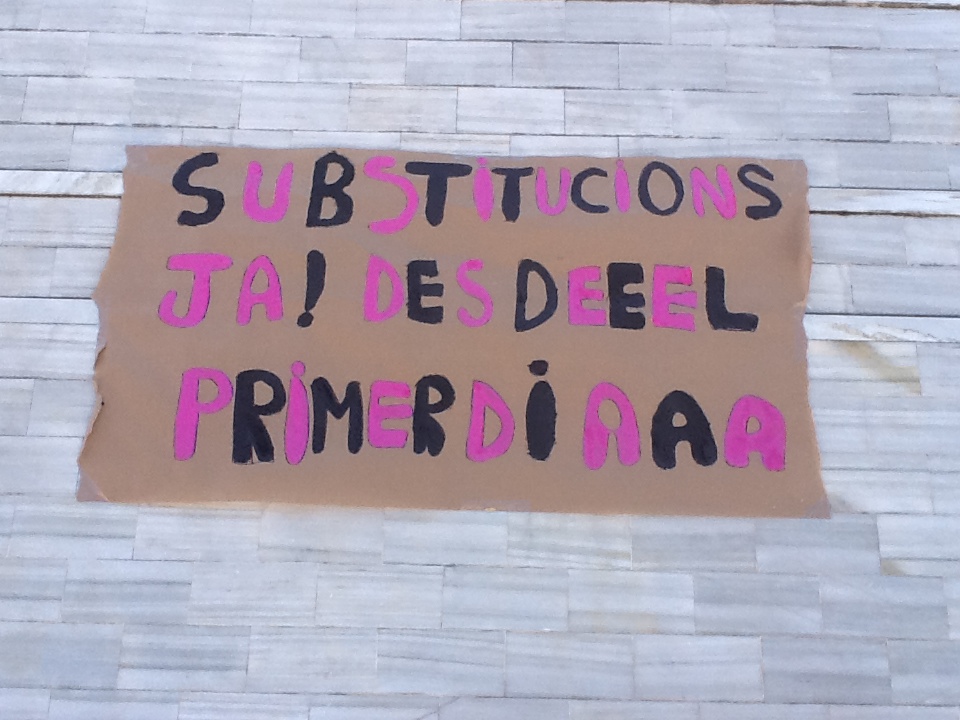 SUBSTiTUCiONS
JA! DES DEEEL
PRiMER DiAAA